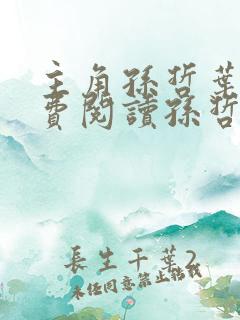 主角孫哲葉
費閱讀孫哲
長生千葉2
未經同意禁止轉載